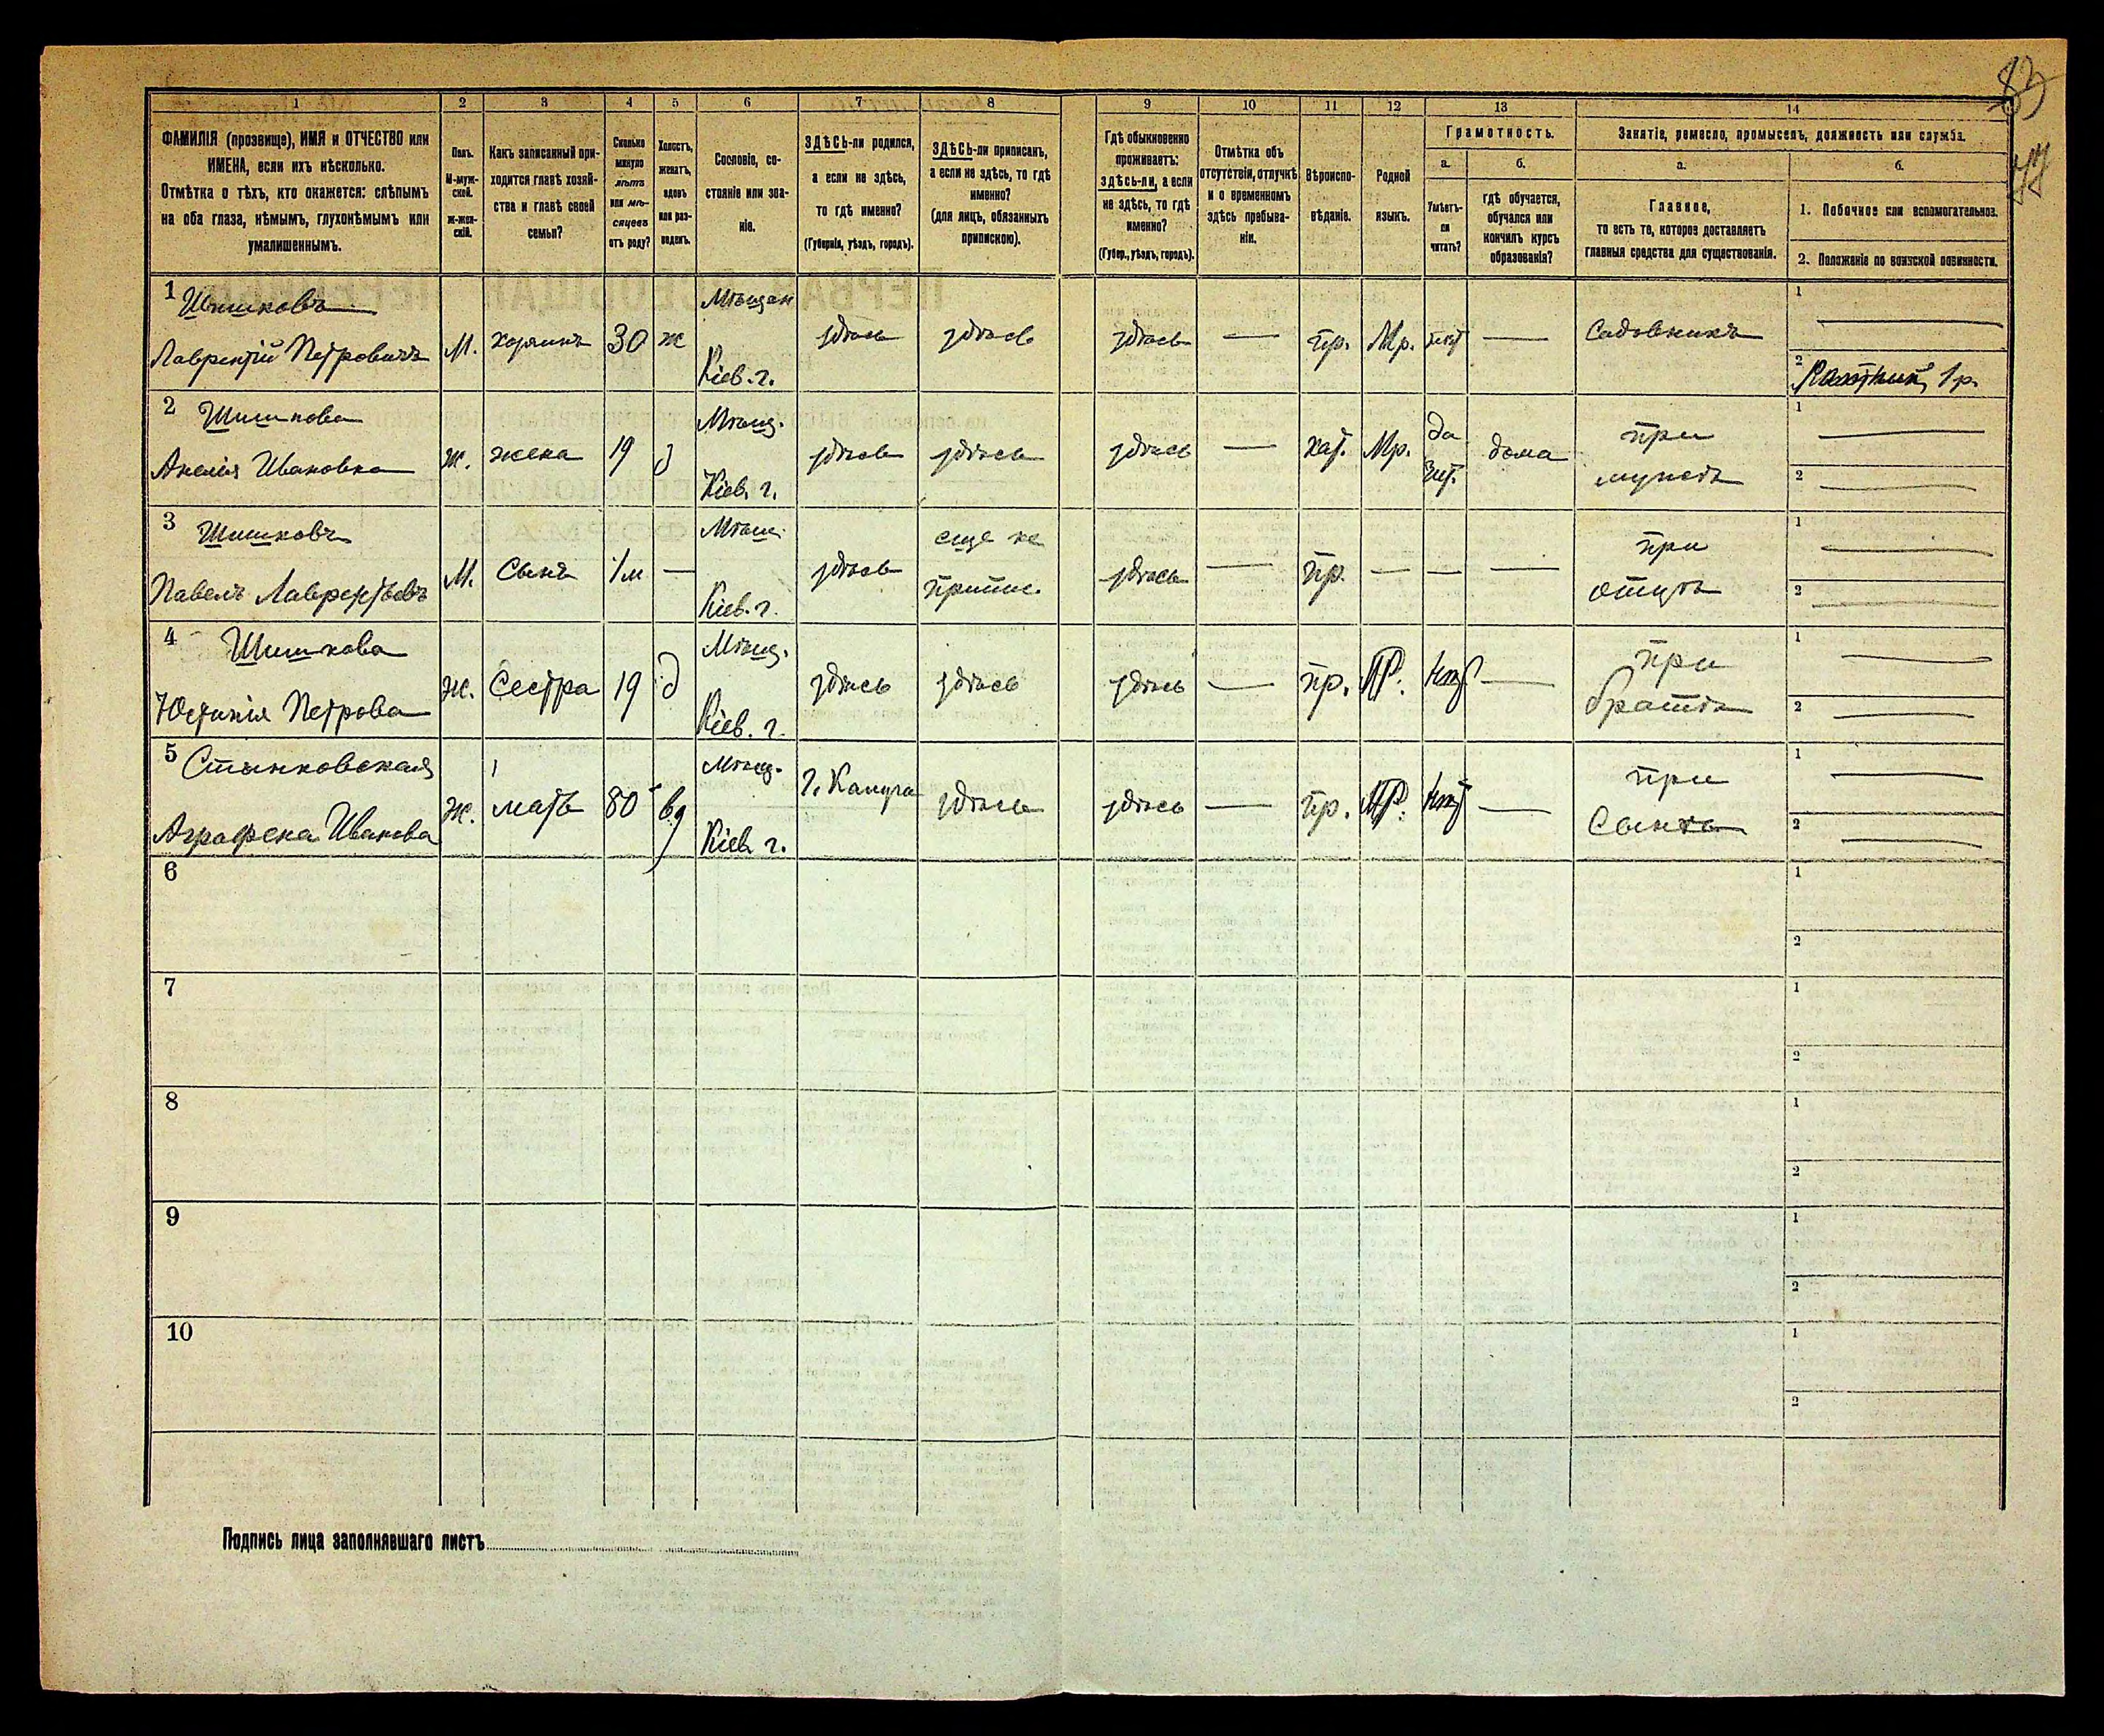 83
44
1
2
3
4
5
6
7
8
9
10
11
12
13
14
ФАМИЛІЯ (прозвище), ИМЯ и ОТЧЕСТВО или
ИМЕНА, если ихъ нѣсколько.
Отмѣтка о тѣхъ, кто окажется: слѣпымъ
на оба глаза, нѣмымъ, глухонѣмымъ или
умалишеннымъ.
Полъ.
М-муж-
ской.
Ж-жен-
скій.
Какъ записанный при-
ходится главѣ хозяй-
ства и главѣ своей
семьи?
Сколько
минуло
лѣтъ
или мѣ-
сяцевъ
отъ роду?
Холостъ,
женатъ,
вдовъ
или раз-
веденъ.
Сословіе, со-
стояніе или зва-
ніе.
ЗДѢСЬ-ли родился,
а если не здѣсь,
то гдѣ именно?
(Губернія, уѣздъ, городъ).
ЗДѢСЬ-ли приписанъ,
а если не здѣсь, то гдѣ
именно?
(для лицъ, обязанныхъ
припискою).
Гдѣ обыкновенно
проживаетъ:
здѣсь-ли, а если
не здѣсь, то гдѣ
именно?
(Губер., уѣздъ, городъ).
Отмѣтка объ
отсутствіи, отлучкѣ
и о временномъ
здѣсь пребыва-
ніи.
Вѣроиспо-
вѣданіе.
Родной
языкъ.
Грамотность.
а.
Умѣетъ-
ли
читать?
б.
гдѣ обучается,
обучался или
кончилъ курсъ
образованія?
Занятіе, ремесло, промыселъ, должность или служба.
а.
Главное,
то есть то, которое доставляетъ
главныя средства для существованія.
б.
1. Побочное или вспомогательное.
2. Положеніе по воинской повинности.
1 Шишковъ Мѣщан 1
Лаврентій Петровичъ М. хозяинъ 30 ж здѣсь здѣсь здѣсь — пр. — Садовникъ
Кіев. г. 2 Ратник 1 р.
2 Шишкова Мѣщ. да при 1
Анелія Ивановна ж. жена 19 з здѣсь здѣсь здѣсь — кат. дома мужѣ 2
Кіев. г.
3 Шишковъ Мѣщ. еще не при 1
Павелъ Лаврентьевъ М. Сынъ 1/м — здѣсь припис. здѣсь — пр. — — — отцѣ 2
Кіев. г.
4 Шишкова Мѣщ. при 1
Юстинія Петрова ж. Сестра 19 д здѣсь здѣсь здѣсь — пр. нѣт — братѣ 2
Кіев. г.
5 Стынковская Мѣщ. г. Калуга при 1
Аграфена Иванова ж. мать 80 вд здѣсь здѣсь — пр. нѣт — Сынѣ 2
Кіев. г.
6 1
2
7 1
2
8 1
2
9 1
2
10 1
2
Подпись лица заполнявшаго листъ